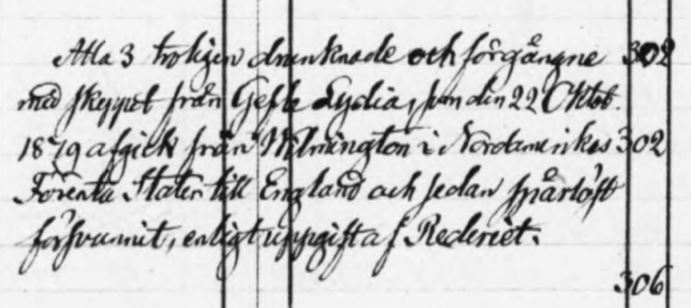 Alla 3 troligen drunknade och förgångne 302
med skeppet från Gefle Lydia, som den 22 Oktob.
1879 afgick från Wilmington i Nordamerikas 302
Förenta Stater till England och sedan spårlöst
försvunnit, enligt uppgift af Rederiet.
306